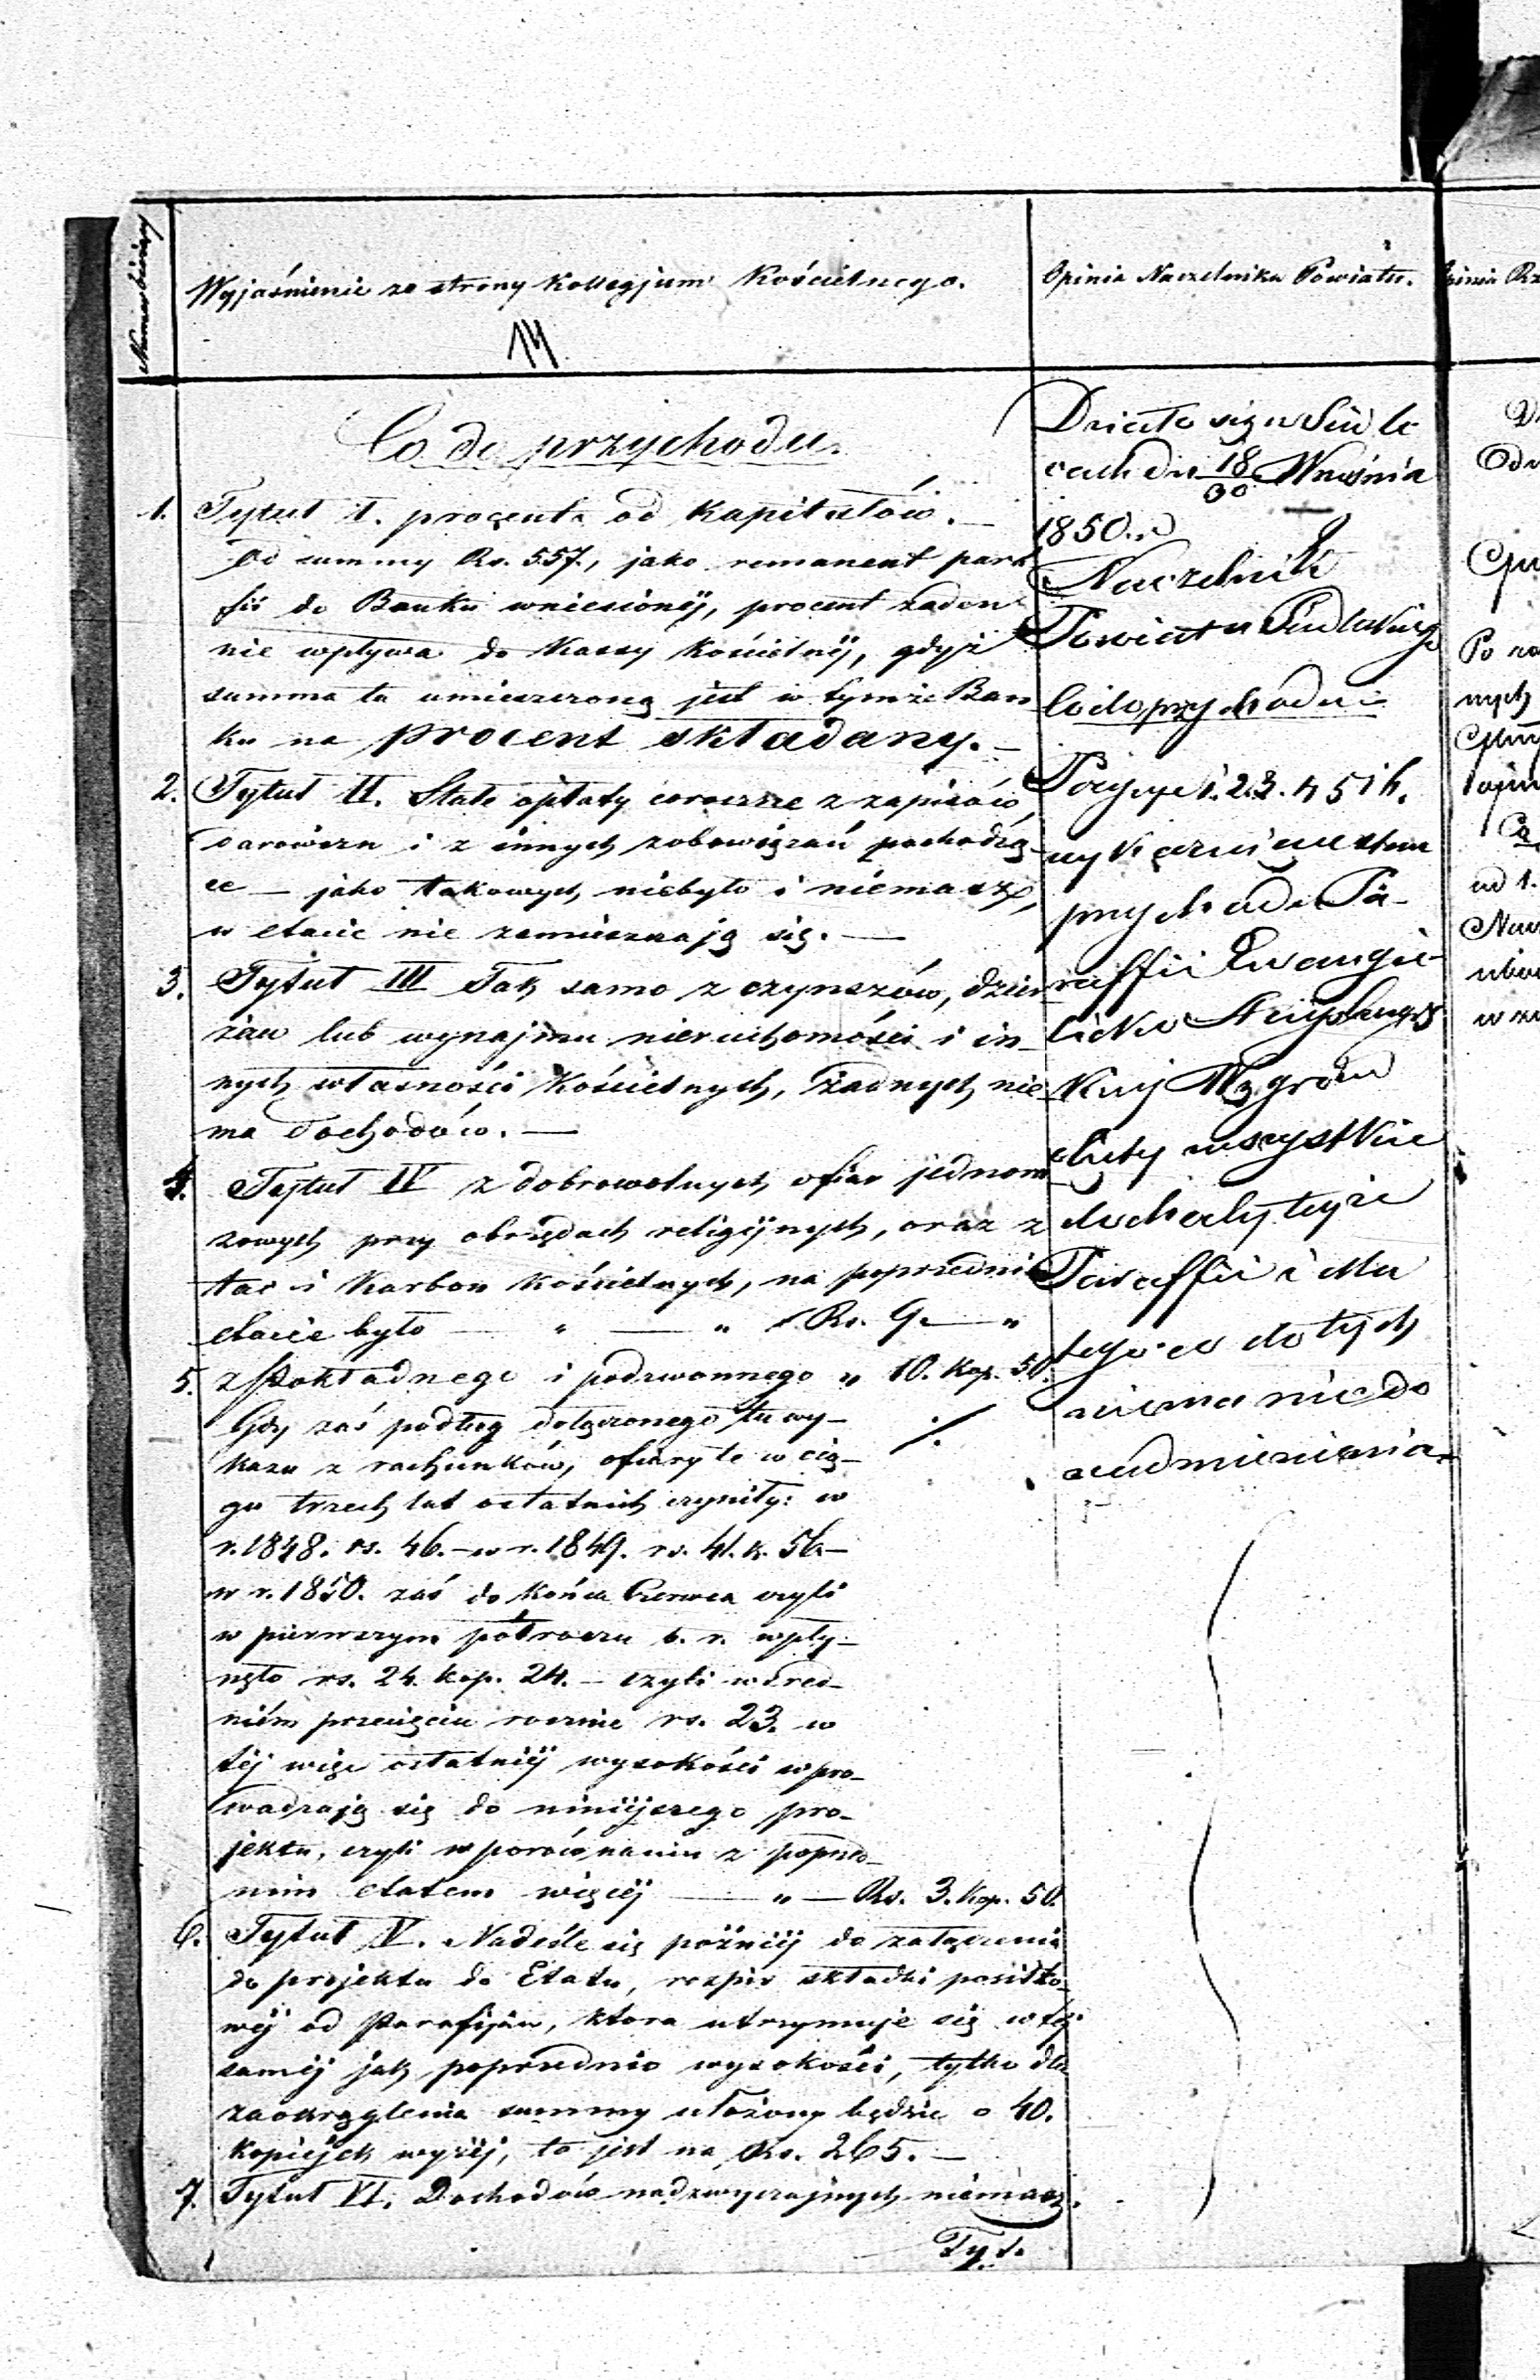 Numer bieżący
Wyjaśnienie ze strony Kollegjum Kościelnego.
14
Co do przychodu.
1. Tytuł I. procenta od Kapitałów. —
Od summy Rs. 557., jako remanent para
fii do Banku wniesionéj, procent żaden
nie wpływa do Kassy Kościelnéj, gdyż
summa ta umieszczoną jest w tymże Ban
ku na procent składany. —
2. Tytuł II. Stałe opłaty coroczne z zapisów,
darowizn i z innych zobowiązań pochodzą-
ce — jako takowych niebyło i niémasz,
w etacie nie zamieszczają się. —
3. Tytuł III Tak samo z czynszów, dzier
żaw lub wynajmu nieruchomości i in-
nych własności Kościelnych, żadnych nie
ma dochodów. —
4. Tytuł IV z dobrowolnych ofiar jednora
zowych przy obrzędach religijnych, oraz z
tac i Karbon Kościelnych, na poprzednim
etacie było — „ — „ Rs. 9. — „
5. z Pokładnego i podzwonnego „ 10. Kop. 50.
Gdy zaś podług dołączonego tu wy-
kazu z rachunków, ofiary te w cią-
gu trzech lat ostatnich czyniły: w
r. 1848. rs. 46. — w r. 1849. rs. 41. k. 56 —
w r. 1850. zaś do Końca Czerwca czyli
w pierwszym półroczu b. r. wpły-
nęło rs. 24. kop. 24. — czyli w śred-
niém przecięciu rocznie rs. 23. w
téj więc ostatniéj wysokości wpro-
wadzają się do niniéjszego pro-
jektu, czyli w porównaniu z poprzed-
nim etatem więcéj — „ — Rs. 3. Kop. 50.
6. Tytuł V. Nadeśle się późniéj do załączenia
do projektu do Etatu, rozpis składki posiłko-
wéj od Parafijan, która utrzymuje się w téj
saméj jak poprzednio wysokości, tylko dla
zaokrąglenia summy ułożony będzie o 40.
kopiéjek wyżéj, to jest na Rs. 265. —
7. Tytuł VI. Dochodów nadzwyczajnych niémasz.
Tyt.
Opinia Naczelnika Powiatu.
Działo się w Siedl
cach dn 18/30 Września
1850. r
Naczelnik
Powiatu Siedleckiego
Co do przychodu
Pozycye 1. 2. 3. 4 5 i 6.
przychodu Pa-
raffii Ewangie-
licko Augsburgs
kiej Węgrow
wszystkie
dochody tejże
Paraffii i dla
tego co do tych
niema nic do
nadmienienia.